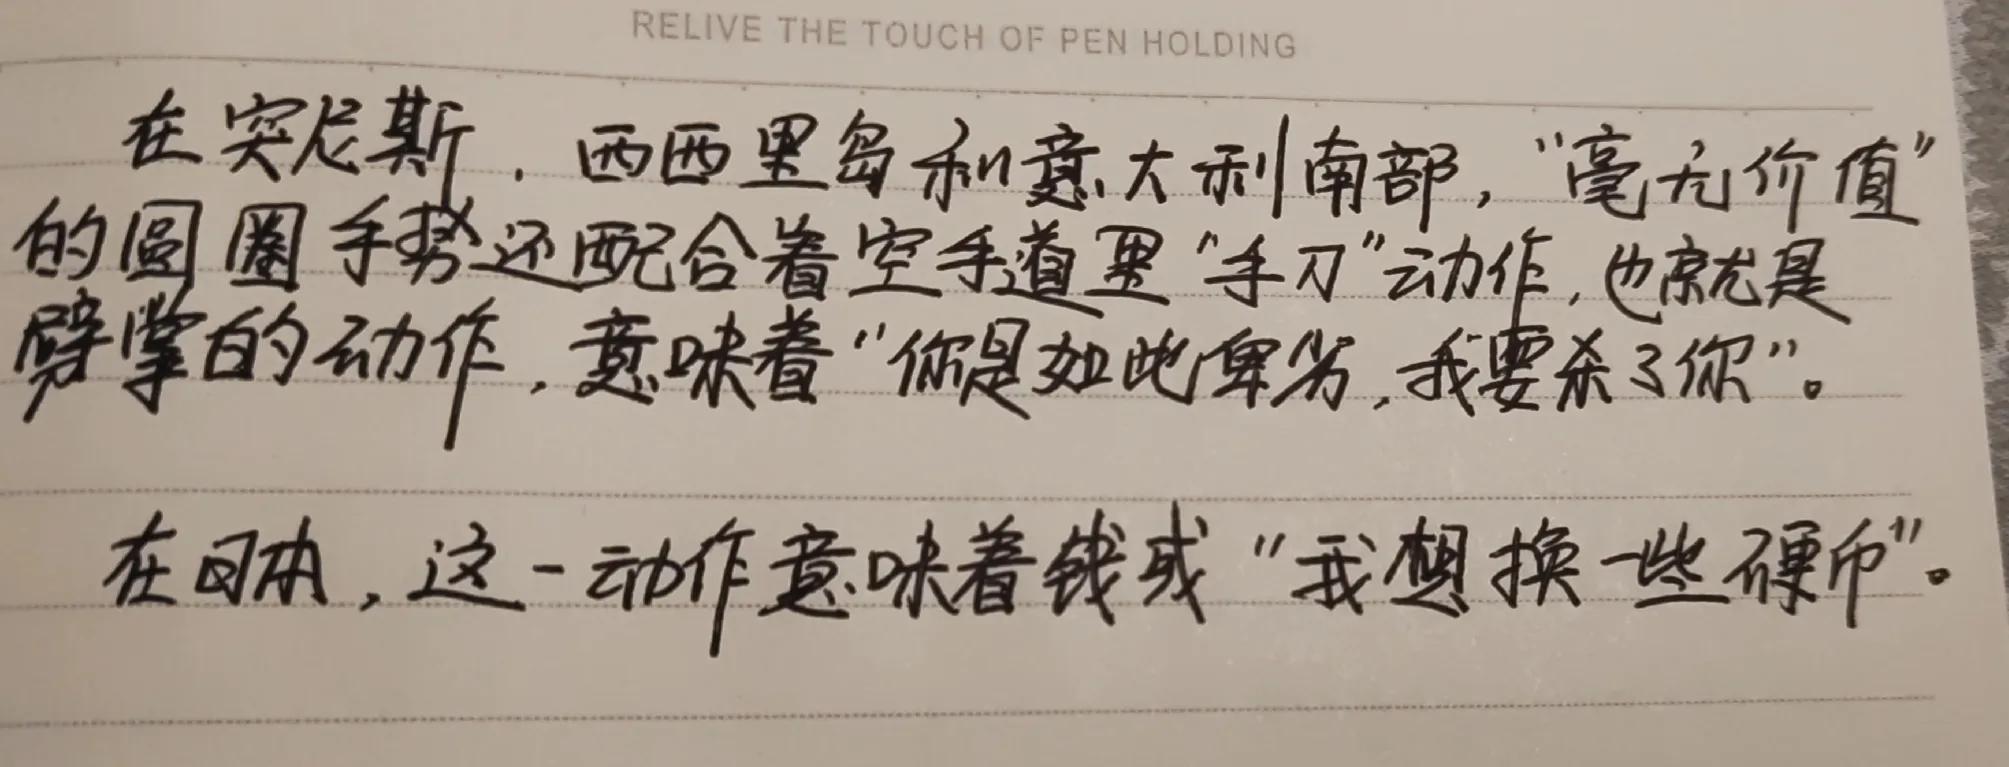 RELIVE THE TOUCH OF PEN HOLDING
在突尼斯，西西里岛和意大利南部，“毫无价值”
的圆圈手势还配合着空手道里“手刀”动作，也就是
劈掌的动作，意味着“你是如此卑劣，我要杀了你”。
在日本，这一动作意味着钱或“我想换一些硬币”。